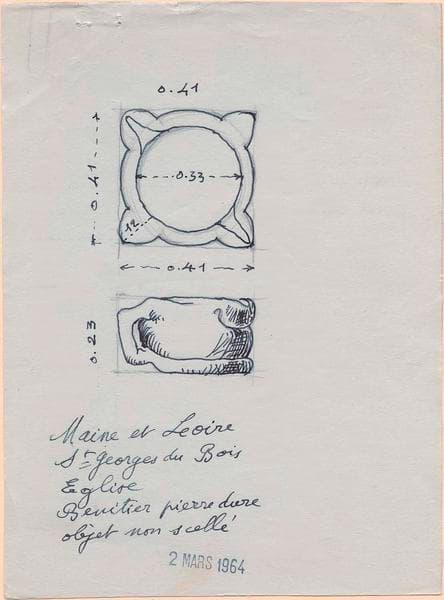 0.41
0.41
0.33
12
0.41
0.23
Maine et Leoire
St Georges du Bois
Eglise
Benitier pierre dure
objet non scellé
2 MARS 1964